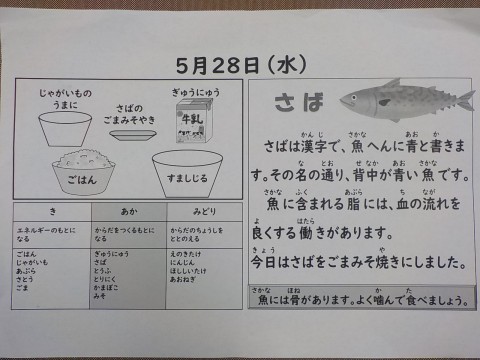 5月28日(水)
じゃがいもの
うまに
さばの
ごまみそやき
ぎゅうにゅう
牛乳
ごはん
すましじる
き
あか
みどり
エネルギーのもとに
なる
からだをつくるもとに
なる
からだのちょうしを
ととのえる
ごはん
じゃがいも
あぶら
さとう
ごま
ぎゅうにゅう
さば
とうふ
とりにく
かまぼこ
みそ
えのきたけ
にんじん
ほししいたけ
あおねぎ
さば
かんじ さかな あお か
さばは漢字で、魚へんに青と書きま
な とお せなか あお さかな
す。その名の通り、背中が青い魚です。
さかな ふく あぶら ち なが
魚に含まれる脂には、血の流れを
よ はたら
良くする働きがあります。
きょう や
今日はさばをごまみそ焼きにしました。
さかな ほね か た
魚には骨があります。よく噛んで食べましょう。